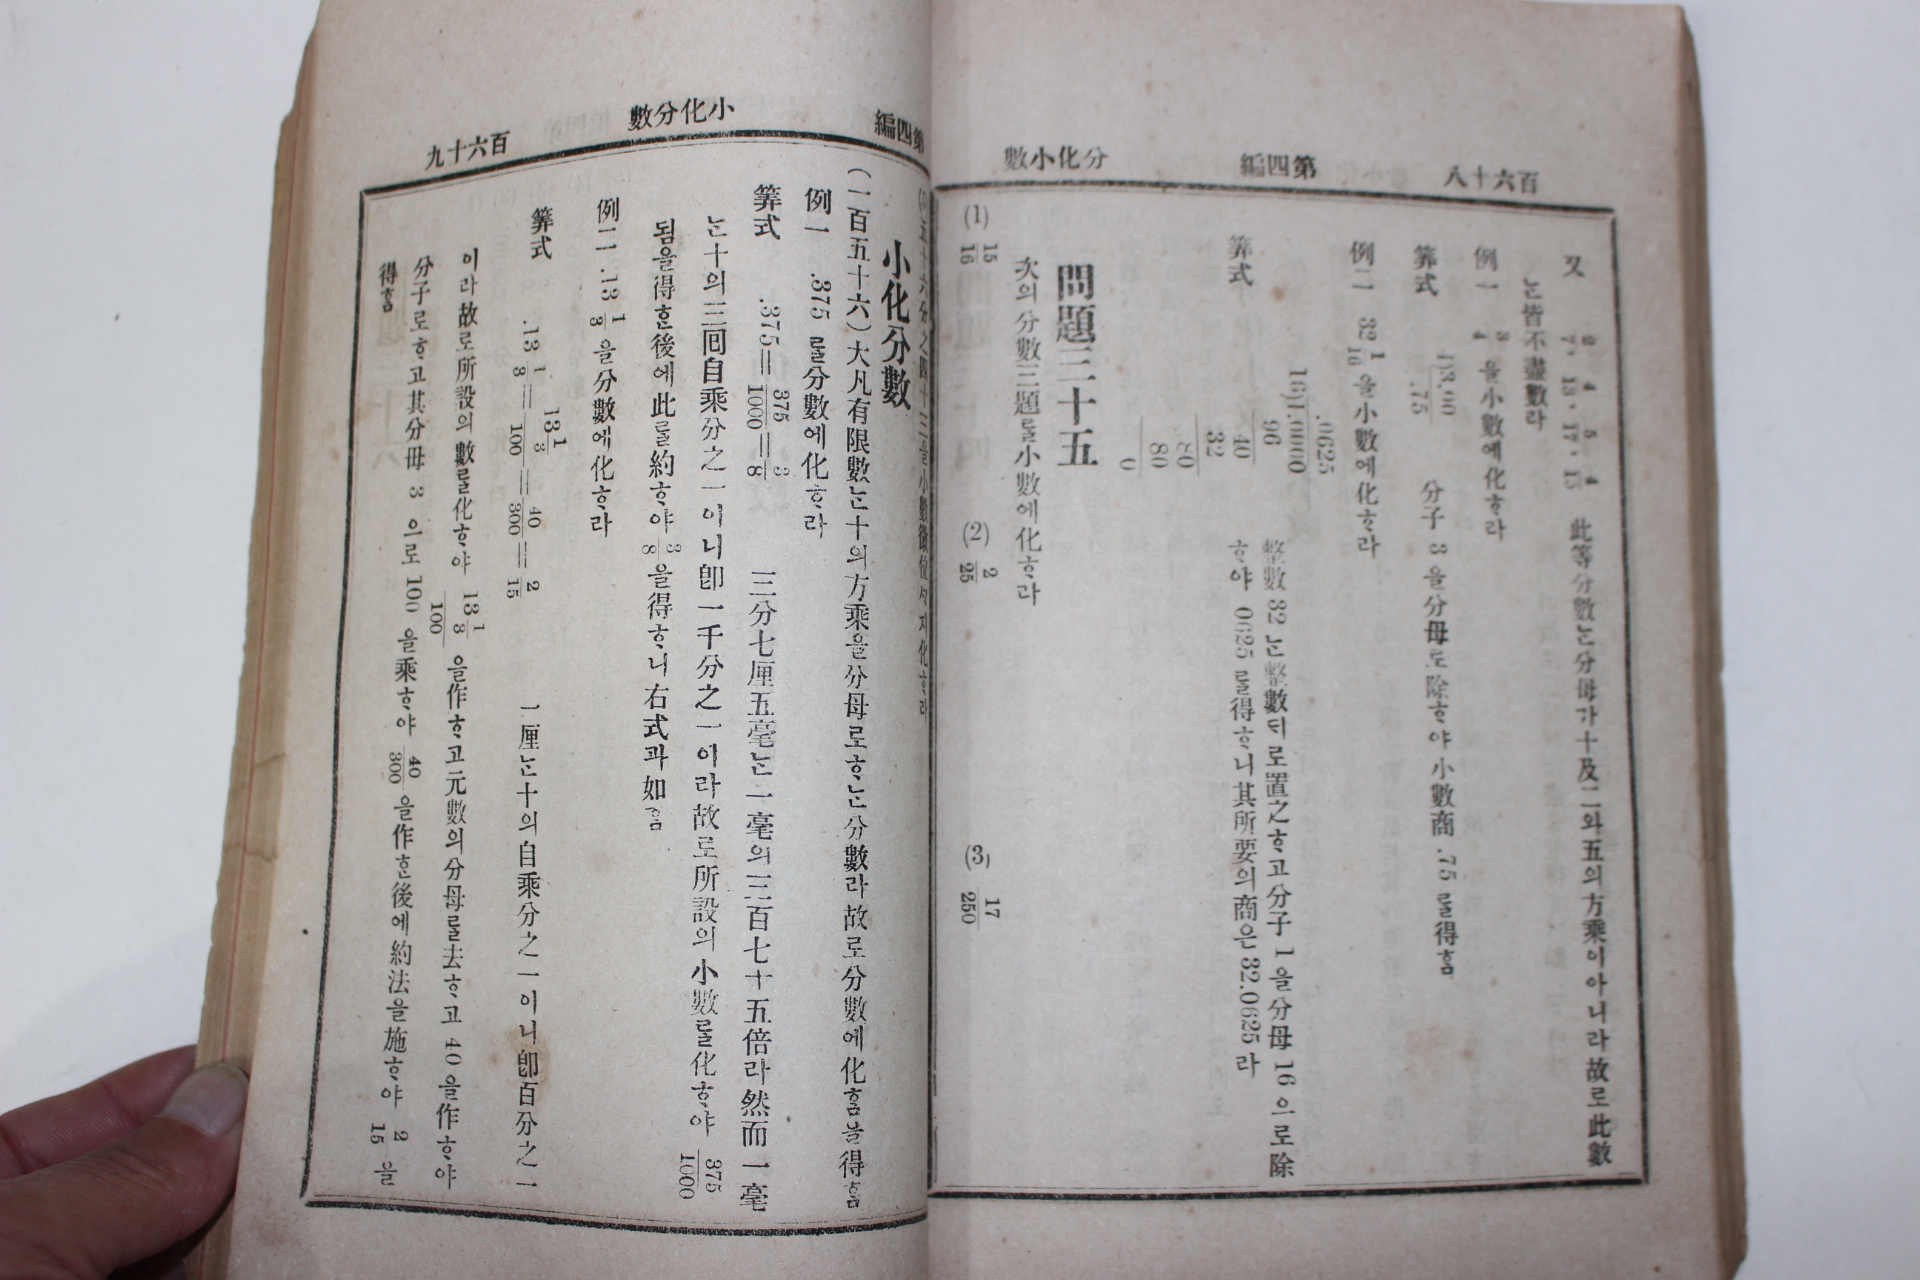 百六十八
第四編
分化小數
又 2/7, 4/13, 5/17, 4/15 此等分數는分母가十及二와五의方乘이아니라故로此數
는皆不盡數라
例一 3/4 을小數에化ᄒᆞ라
筭式 4)3.00 分子 3 을分母로除ᄒᆞ야小數商 .75 를得홈
.75
例二 32 1/16 을小數에化ᄒᆞ라
筭式
.0625
16)1.0000
96
40
32
80
80
0
整數 32 는整數ᄃᆡ로置之ᄒᆞ고分子 1 을分母 16 으로除
ᄒᆞ야 0625 를得ᄒᆞ니其所要의商은 32.0625 라
問題三十五
次의分數三題를小數에化ᄒᆞ라
(1) 15/16 (2) 2/25 (3) 17/250
第四編
小化分數
百六十九
小化分數
(一百五十六)大凡有限數는十의方乘을分母로ᄒᆞ는分數라故로分數에化홈을得홈
例一 .375 를分數에化ᄒᆞ라
筭式 .375=375/1000=3/8 三分七厘五毫는一毫의三百七十五倍라然而一毫
는十의三回自乘分之一이니卽一千分之一이라故로所設의小數를化ᄒᆞ야 375/1000
됨을得ᄒᆞᆫ後에此를約ᄒᆞ야 3/8 을得ᄒᆞ니右式과如홈
例二 .13 1/3 을分數에化ᄒᆞ라
筭式 .13 1/3=13 1/3/100=40/300=2/15 一厘는十의自乘分之一이니卽百分之一
이라故로所設의數를化ᄒᆞ야 13 1/3/100 을作ᄒᆞ고元數의分母를去ᄒᆞ고 40 을作ᄒᆞ야
分子로ᄒᆞ고其分母 3 으로 100 을乘ᄒᆞ야 40/300 을作ᄒᆞᆫ後에約法을施ᄒᆞ야 2/15 을
得홈